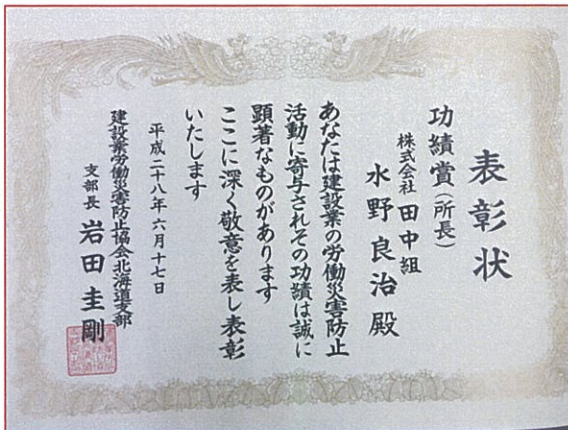 表彰状
功績賞(所長)
株式会社 田中組
水野良治殿
あなたは建設業の労働災害防止
活動に寄与されその功績は誠に
顕著なものがあります
ここに深く敬意を表し表彰
いたします
平成二十八年六月十七日
建設業労働災害防止協会北海道支部
支部長 岩田圭剛